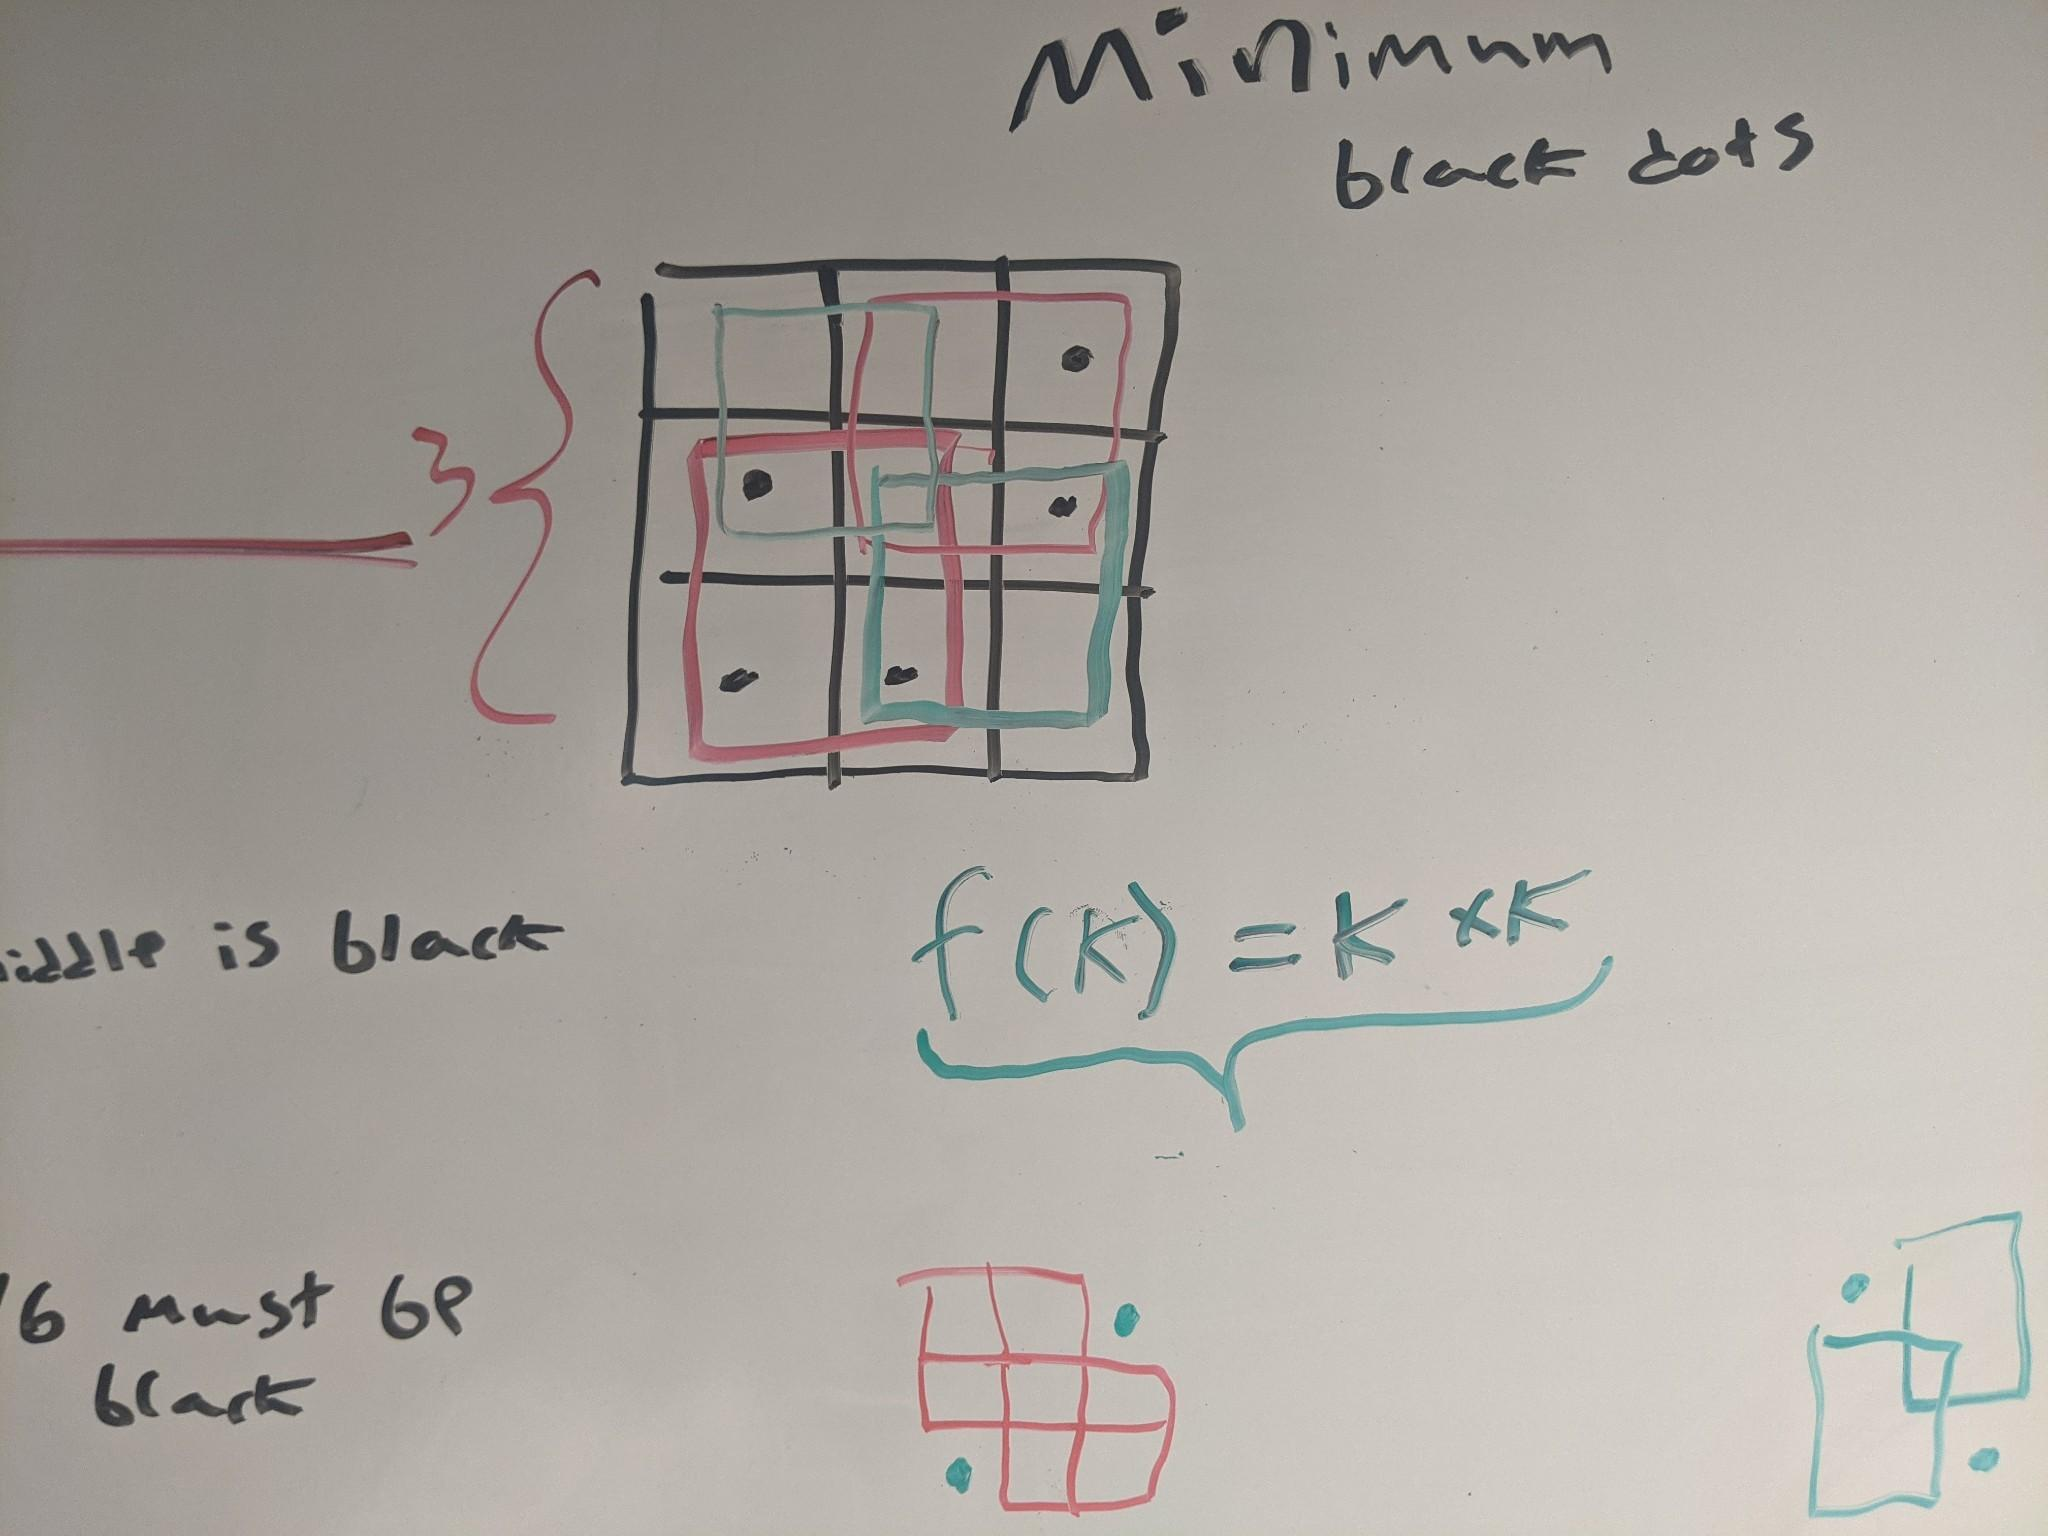 Minimum
black dots
3
is black
f(K) = K xK
6 must be
black